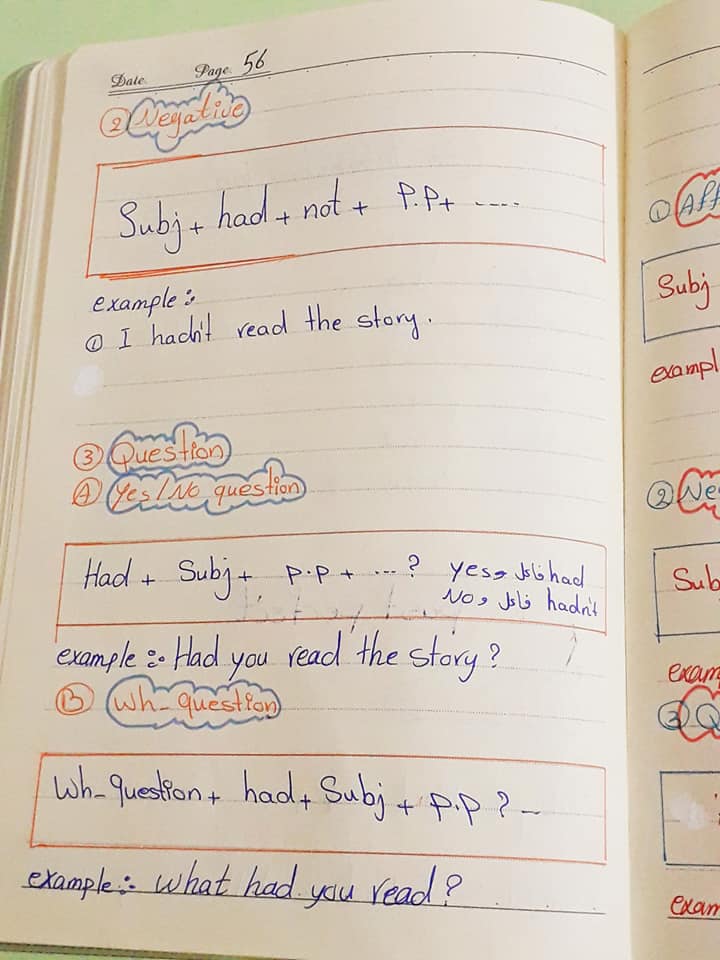 Date. Page. 56
② Negative
Subj + had + not + P.P+ ----
example :
① I hadn't read the story.
③ Question
Ⓐ Yes/No question
Had + Subj + P.P + ... ? yes و فاعل had
No و فاعل hadn't
example :- Had you read the story ?
Ⓑ Wh-question
Wh-question + had + Subj + P.P ? -
example :- What had you read ?
① Aff
Subj
exampl
② Ne
Sub
exam
③ Q
exam